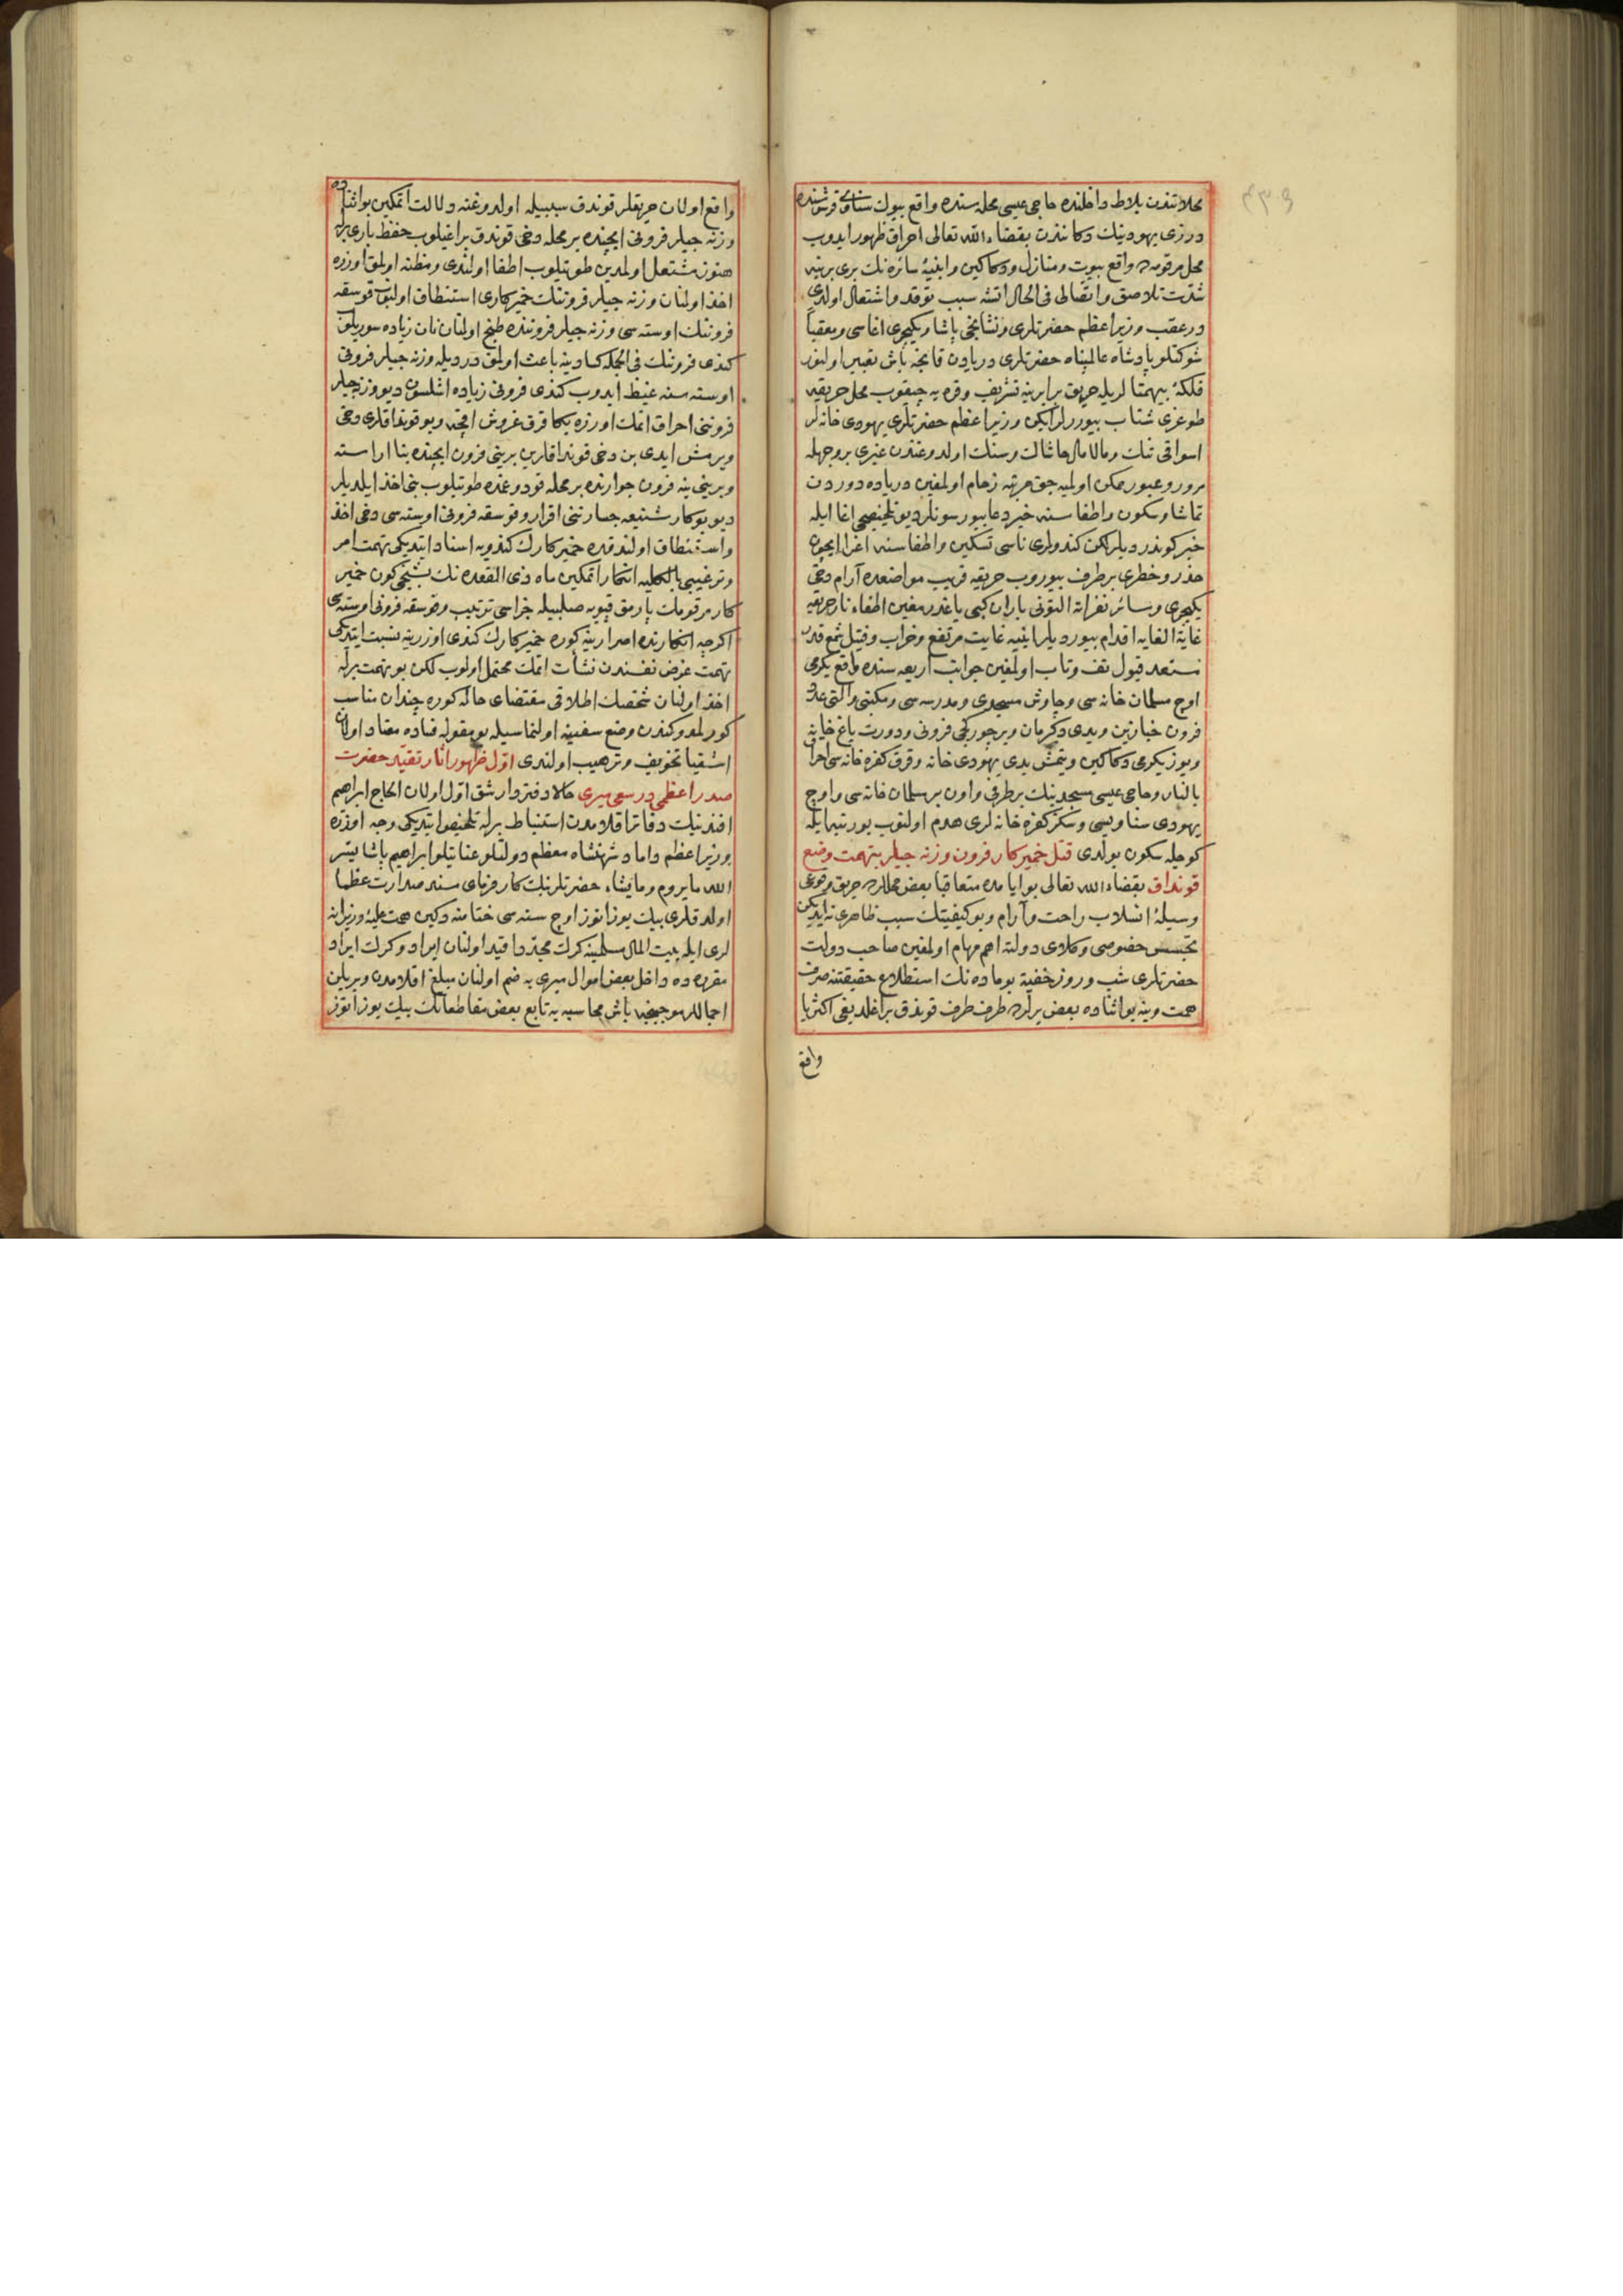 ٤٣٩
محلاتندن بلاط داخلنده حاجی عیسی محله سنده واقع بیوك سناوی قرشوسنده
درزی یهودینك دكانندن بقضاء الله تعالی احراق ظهور ایدوب
محل مرقومده واقع بیوت ومنازل ودكاكین وابنیهٔ سائره نك بری برینه
شدت تلاصق واتصالی فی الحال اتشه سبب توقد واشتعال اولدی
درعقب وزیر اعظم حضرتلری ونشانجی پاشا ویكیچری اغاسی ومعقباً
شوكتلو پادشاه عالمپناه حضرتلری دریادن قانجه باش تعبیر اولنور
فلكهٔ بیهمتالریله حریق برابرینه تشریف وقره یه چیقوب محل حریقه
طوغری شتاب بیوررلر ایكن وزیر اعظم حضرتلری یهودی خانه لر
اسواقی تنك ومالامال خاشاك وسنك اولدوغندن غیری بر وجهله
مرور وعبور ممكن اولمیه جق مرتبه زحام اولمغین دریاده دوردن
تماشا وسكون واطفاسنه خیر دعا بیورسونلر دیو تلخیصی اغا ایله
خبر كوندردیلر لكن كندولری ناسی تسكین واطفاسنه اغرا ایچون
حذر وخطری برطرف بیوروب حریقه قریب مواضعده آرام دخی
یكیچری وسائر نفراته التونی باران كبی یاغدرمغین اطفاء نار حریقه
غایة الغایه اقدام بیوردیلر ابنیه غایت مرتفع وخراب وفتیل شمع قدر
مستعد قبول تف وتاب اولمغین جوانب اربعه سنده واقع یكرمی
اوچ مسلمان خانه سی وچاوش مسجدی ومدرسه سی ومكتبی والتی عدد
فرون خبازین ویدی دكرمان وبر چوركجی فرونی ودورت یاغ خانه
ویوز یكرمی دكاكین ویتمش یدی یهودی خانه وقرق كفره خانه سی احراق
بالنار وحاجی عیسی مسجدینك بر طرفی واون بر مسلمان خانه سی واوچ
یهودی سناویسی وسكز كفره خانه لری هدم اولنوب بو رتبه ایله
كوجله سكون بولدی قتل خمیركار فرون وزنه جیلر بتهمت وضع
قونداق بقضاء الله تعالی بو ایامده متعاقبا بعض محللرده حریق وقوعی
وسیلهٔ انسلاب راحت وآرام وبو كیفیتك سبب ظاهری نه ایدیكن
تجسس خصوصی وكلای دولته اهم مهام اولمغین صاحب دولت
حضرتلری شب وروز خفیة بو ماده نك استطلاع حقیقتنه صرف
همت وینه بو اثناده بعض یرلرده طرف طرف قوندق براغلدیغی اكثریا
واقع
واقع اولان حریقلر قوندق سببیله اولدوغنه دلالت اتمكین بو اثناده
وزنه جیلر فرونی ایچنده بر محله دخی قوندق براغیلوب حفظ باری برله
هنوز مشتعل اولمدین طوتیلوب اطفا اولندی ومظنه اولمق اوزره
اخذ اولنان وزنه جیلر فروننك خمیركاری استنطاق اولنوب قوسقه
فروننك اوسته سی وزنه جیلر فروننده طبخ اولنان نان زیاده سوریلوب
كندی فروننك فی الجمله كسادینه باعث اولمق دردیله وزنه جیلر فرونی
اوسته سنه غیظ ایدوب كندی فرونی زیاده اشلسون دیو وزنه جیلر
فروننی احراق اتمك اوزره بكا قرق غروش اقچه وبو قونداقلری دخی
ویرمش ایدی بن دخی قونداقلرین برینی فرون ایچنده بنا اراسنه
وبرینی ینه فرون جوارنده بر محله قودوغمده طوتیلوب بنی اخذ ایلدیلر
دیو بو كار شنیعه جسارتنی اقرار وقوسقه فرونی اوسته سی دخی اخذ
واستنطاق اولندقده خمیركارك كندویه اسناد ایتدیكی تهمت امر
وترغیبی بالكلیه انكار اتمكین ماه ذی القعده نك بشنجی كون خمیر
كار مرقومك پارمق قپویه صلبیله جزاسی ترتیب وقوسقه فرونی اوسته سی
اكرچه انكارنده اصرارینه كوره خمیركارك كندی اوزرینه نسبت ایتدیكی
تهمت غرض نفسندن نشأت اتمك محتمل اولوب لكن بو تهمت برله
اخذ اولنان شخصك اطلاقی مقتضای حاله كوره چندان مناسب
كورلمدوكندن وضع سفینه اولنماسیله بو مقوله فساده معتاد اولان
اشقیا تخویف وترهیب اولندی اول ظهور اثار تقید حضرت
صدر اعظمی در سعی میری حالا دفتردار شق اول اولان الحاج ابراهیم
افندینك دفاتر اقلامدن استنباط برله تلخیص ایتدیكی وجه اوزره
وزیر اعظم وداماد شهنشاه معظم دولتلو عنایتلو ابراهیم پاشا یسر
الله مایروم ومایشاء حضرتلرینك كارفرمای مسند صدارت عظما
اولدقلری بیك یوز اتوز اوچ سنه سی ختامنه دكین همت علیهٔ وزیرانه
لری ایله بیت المال مسلمینه كرك مجددا قید اولنان ایراد وكرك ایراد
مقرره ده داخل بعض اموال میری یه ضم اولنان مبلغ اقلامدن ویریلن
اجماللر موجبنجه باش محاسبه یه تابع بعض مقاطعاتك بیك یوز اتوز